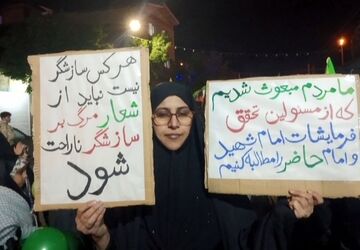 ما مردم مبعوث شدیم
که از مسئولین تحقق
فرمایشات امام شهید
و امام حاضر را مطالبه کنیم
هر کس سازشگر
نیست نباید از
شعار مرگ بر
سازشگر ناراحت
شود